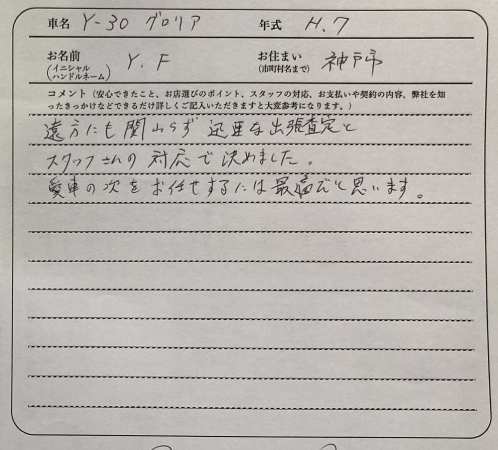 車名 Y-30 グロリア 年式 H.7
お名前 (イニシャル ハンドルネーム) Y.F お住まい (市町村名まで) 神戸市
コメント（安心できたこと、お店選びのポイント、スタッフの対応、お支払いや契約の内容、弊社を知
ったきっかけなどできるだけ詳しくご記入いただきますと大変参考になります。）
遠方にも関わらず 迅速な出張査定と
スタッフさんの対応で決めました。
愛車の次をお任せするには最適だと思います。